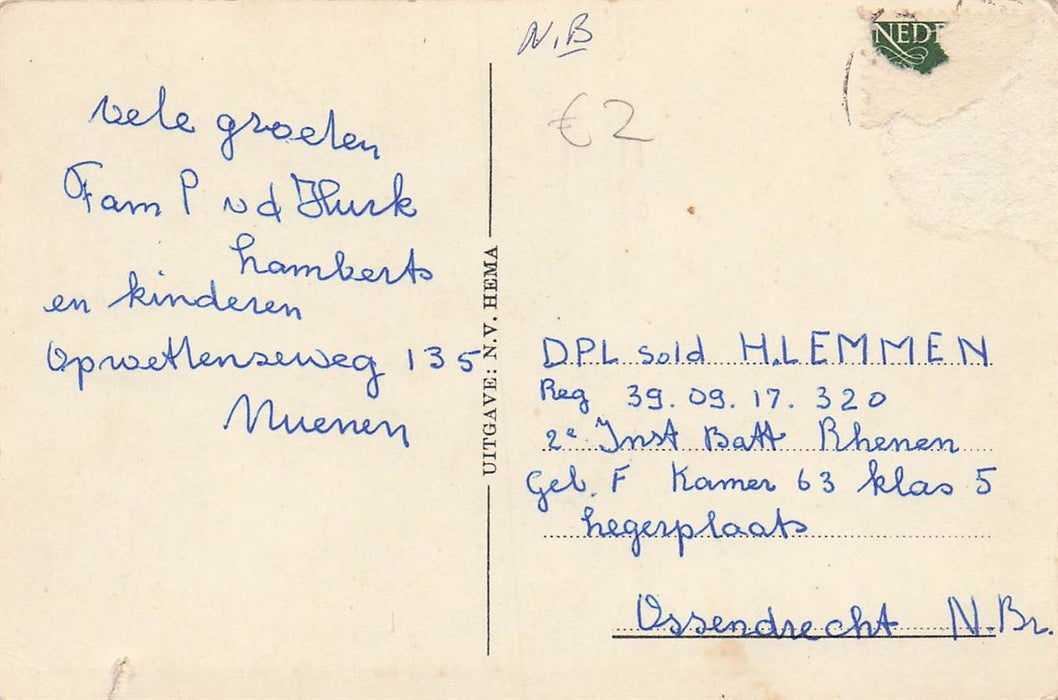 N.B
NEDE
€2
vele groeten
Fam P vd Hurk
Lamberts
en kinderen
Opwettenseweg 135
Nuenen
UITGAVE: N.V. HEMA
DPL sold H.LEMMEN
Reg 39.09.17.320
2e Inst Batt Rhenen
Geb. F Kamer 63 klas 5
Legerplaats
Ossendrecht N.Br.